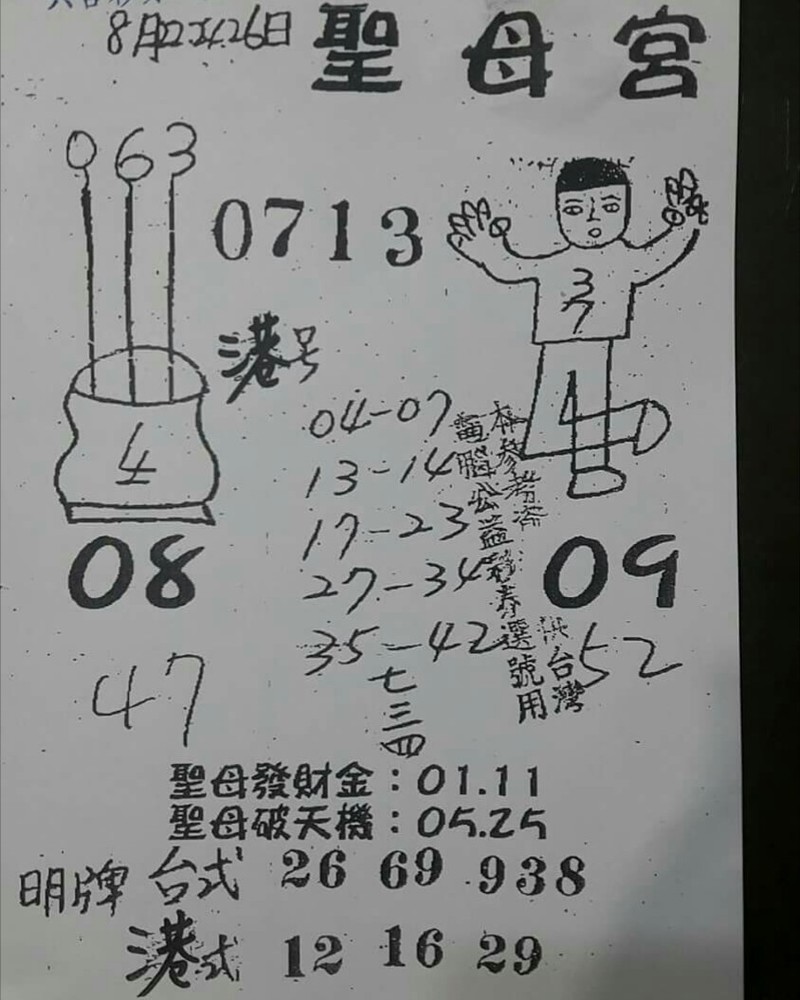 8月22 24 26日
聖母宮
0 6 3
0713
3
7
港号
04-07
13-14
17-23
27-34
35-42
七三四
4
1
08
09
47
52
本參考
供台灣
電腦公益彩券選號用
聖母發財金：01.11
聖母破天機：05.25
明牌 台式 26 69 938
港式 12 16 29